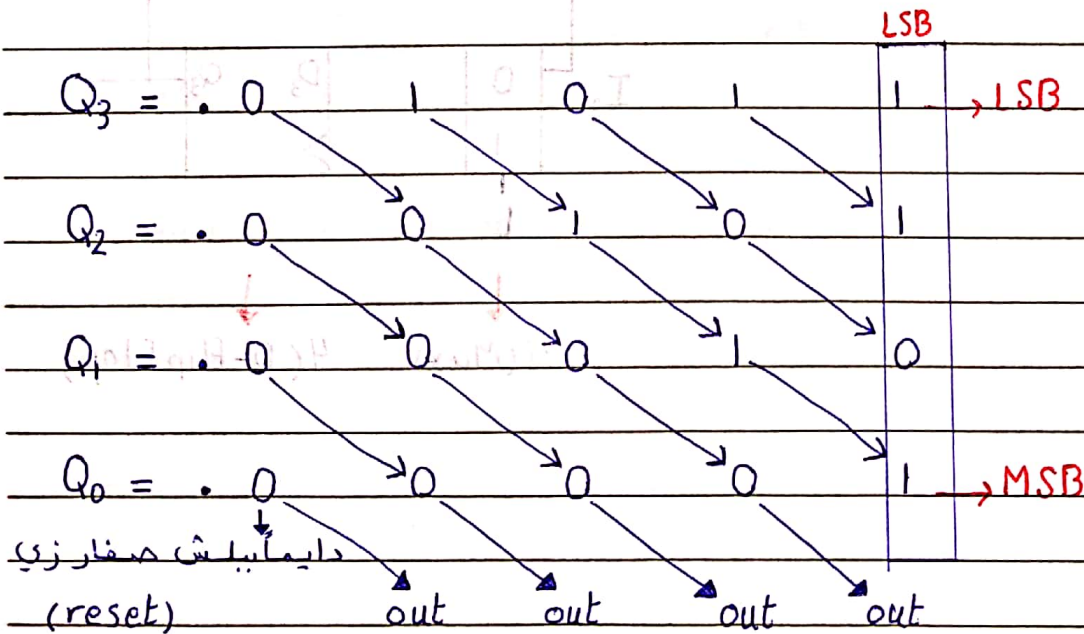 LSB
Q3 = . 0 1 0 1 1 → LSB
Q2 = . 0 0 1 0 1
Q1 = . 0 0 0 1 0
Q0 = . 0 0 0 0 1 → MSB
دايماً ببلش صفار زي
(reset) out out out out